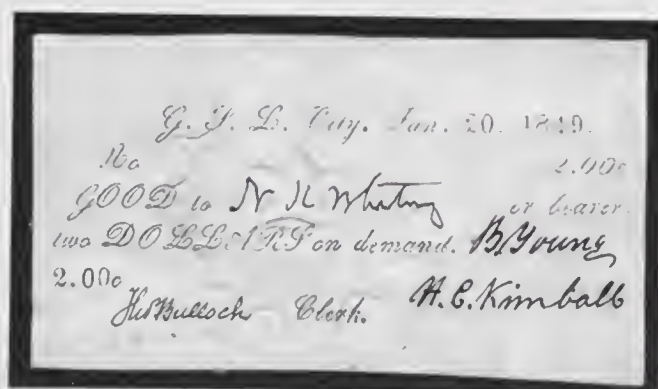 G. S. L. City. Jan. 20. 1849.
No 2.00c
GOOD to N K Whitney or bearer.
two DOLLARS on demand. B. Young
2.00c H. C. Kimball
Thos Bullock Clerk.